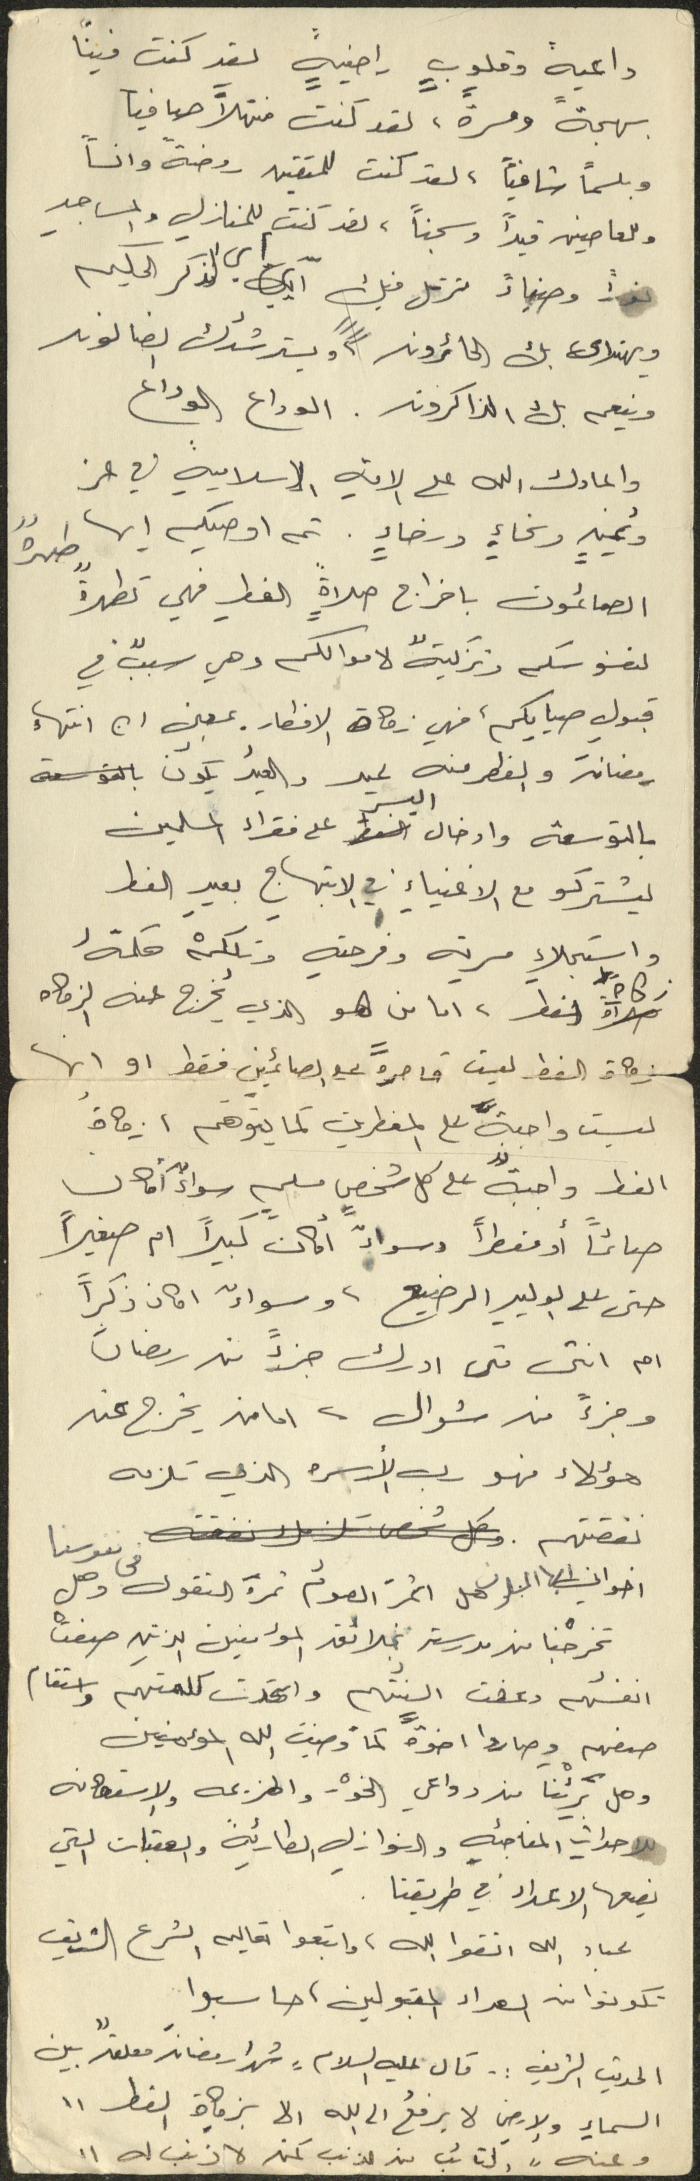 داعيةً وقلوبٍ راضيةٍ لقد كنت فينا
بهجةً ومسرةً ، لقد كنت منهلاً صافيا
وبلسماً شافياً ، لقد كنت للمتقين روضةً وانساً
وللعاصين قيداً وسجناً ، لقد كنت للمنازلِ والمساجدِ
نوراً وضياءً ترتل فيك آي الذكر الحكيم
ويهتدى بك الحائرون ويسترشدك الضالون
وينعم بك الذاكرون . الوداع الوداع
واعادك الله على الامةِ الإسلاميةِ في عز
وتمكينٍ ورخاءٍ . ثم اوصيكم ايها
الصائمون باخراج صلاةِ الفطرِ فهي تطهرةٌ طهرةٌ
لنفوسكم وتزكيةٌ لاموالكم وهي سببٌ في
قبولِ صيامِكم ، فهي زكاة الافطار . بمعنى ان انتهاء
رمضانَ والفطر منه عيد والعيدُ يكون بالتوسعة
بالتوسعة وادخال اليسر على فقراء المسلمين
ليشتركو مع الاغنياءِ في الابتهاجِ بعيدِ الفطر
واستجلاءِ مسرته وفرحتهِ وتلكمْ حكمةُ
زكاة الفطر ، اما من هو الذي يُخرج عنه الزكاه
فزكاة الفطر ليست قاصرةً على الصائمين فقط او انها
ليست واجبةً على المفطرين كما يتوهم ، زكاةُ
الفطر واجبةٌ على كل شخصٍ مسلمٍ سواءٌ أكان
صائماً أو مفطراً وسواءٌ أكان كبيراً ام صغيراً
حتى على الوليدِ الرضيع ، وسواءٌ اكان ذكراً
ام انثى متى ادرك جزءً من رمضان
وجزءً من شوال ، اما من يخرج عن
هؤلاء فهو رب الأسره الذي تلزمه
نفقتهم . وكل شخص تلزمك نفقته
اخواني ايها المسلمون هل اثمرَ الصومُ ثمرةَ التقوى في نفوسنا وهل
تخرجْنا من مدرسته بخلائق المؤمنين الذين صفتْ
انفسُهم وعفت السنتُهم واتحدت كلمتهم واستقام
صفهم وصاروا اخوةً كما وصف الله المؤمنين
وهل برِئْنا من دواعي الخوف والهزيمه والاستكانه
للاحداثِ المفاجئهِ والنوازلِ الطارئةِ والعقبات التي
يضعها الاعداء في طريقنا .
عباد الله اتقوا الله ، واتبعوا تعاليم الشرع الشريف
تكونوا من السعداء المقبولين ، حاسبوا
الحديث الشريف :- قال عليه السلام " شهر رمضانَ معلقٌ بين
السماءِ والارضِ لا يرفعُ الى الله الا بزكاةِ الفطر "
وعنه " التائب من الذنب كمن لا ذنب له "